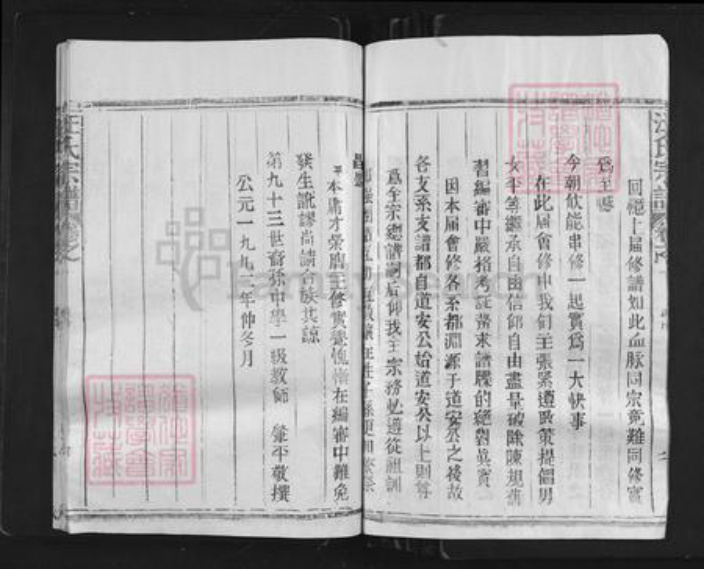 汪氏宗譜
回憶上屆修譜如此血脉同宗竟難同修實
為至憾
今朝欣能串修一起實為一大快事
在此屆會修中我們主張緊遵政策提倡男
女平等繼承自由信仰自由盡量破除陳規舊
習編審中嚴格考証務求譜牒的絕對真實
因本屆會修各系都淵源于道安公之後故
各支系支譜都自道安公始道安公以上則尊
為至宗總譜嗣后仰我主宗務必遵從祖訓
昌盛
本庸才榮膺主修實覺愧慚在編審中難免
發生訛謬尚請合族共諒
第九十三世裔孫中學一級教師 肇平敬撰
公元一九九一年仲冬月
汪氏宗譜